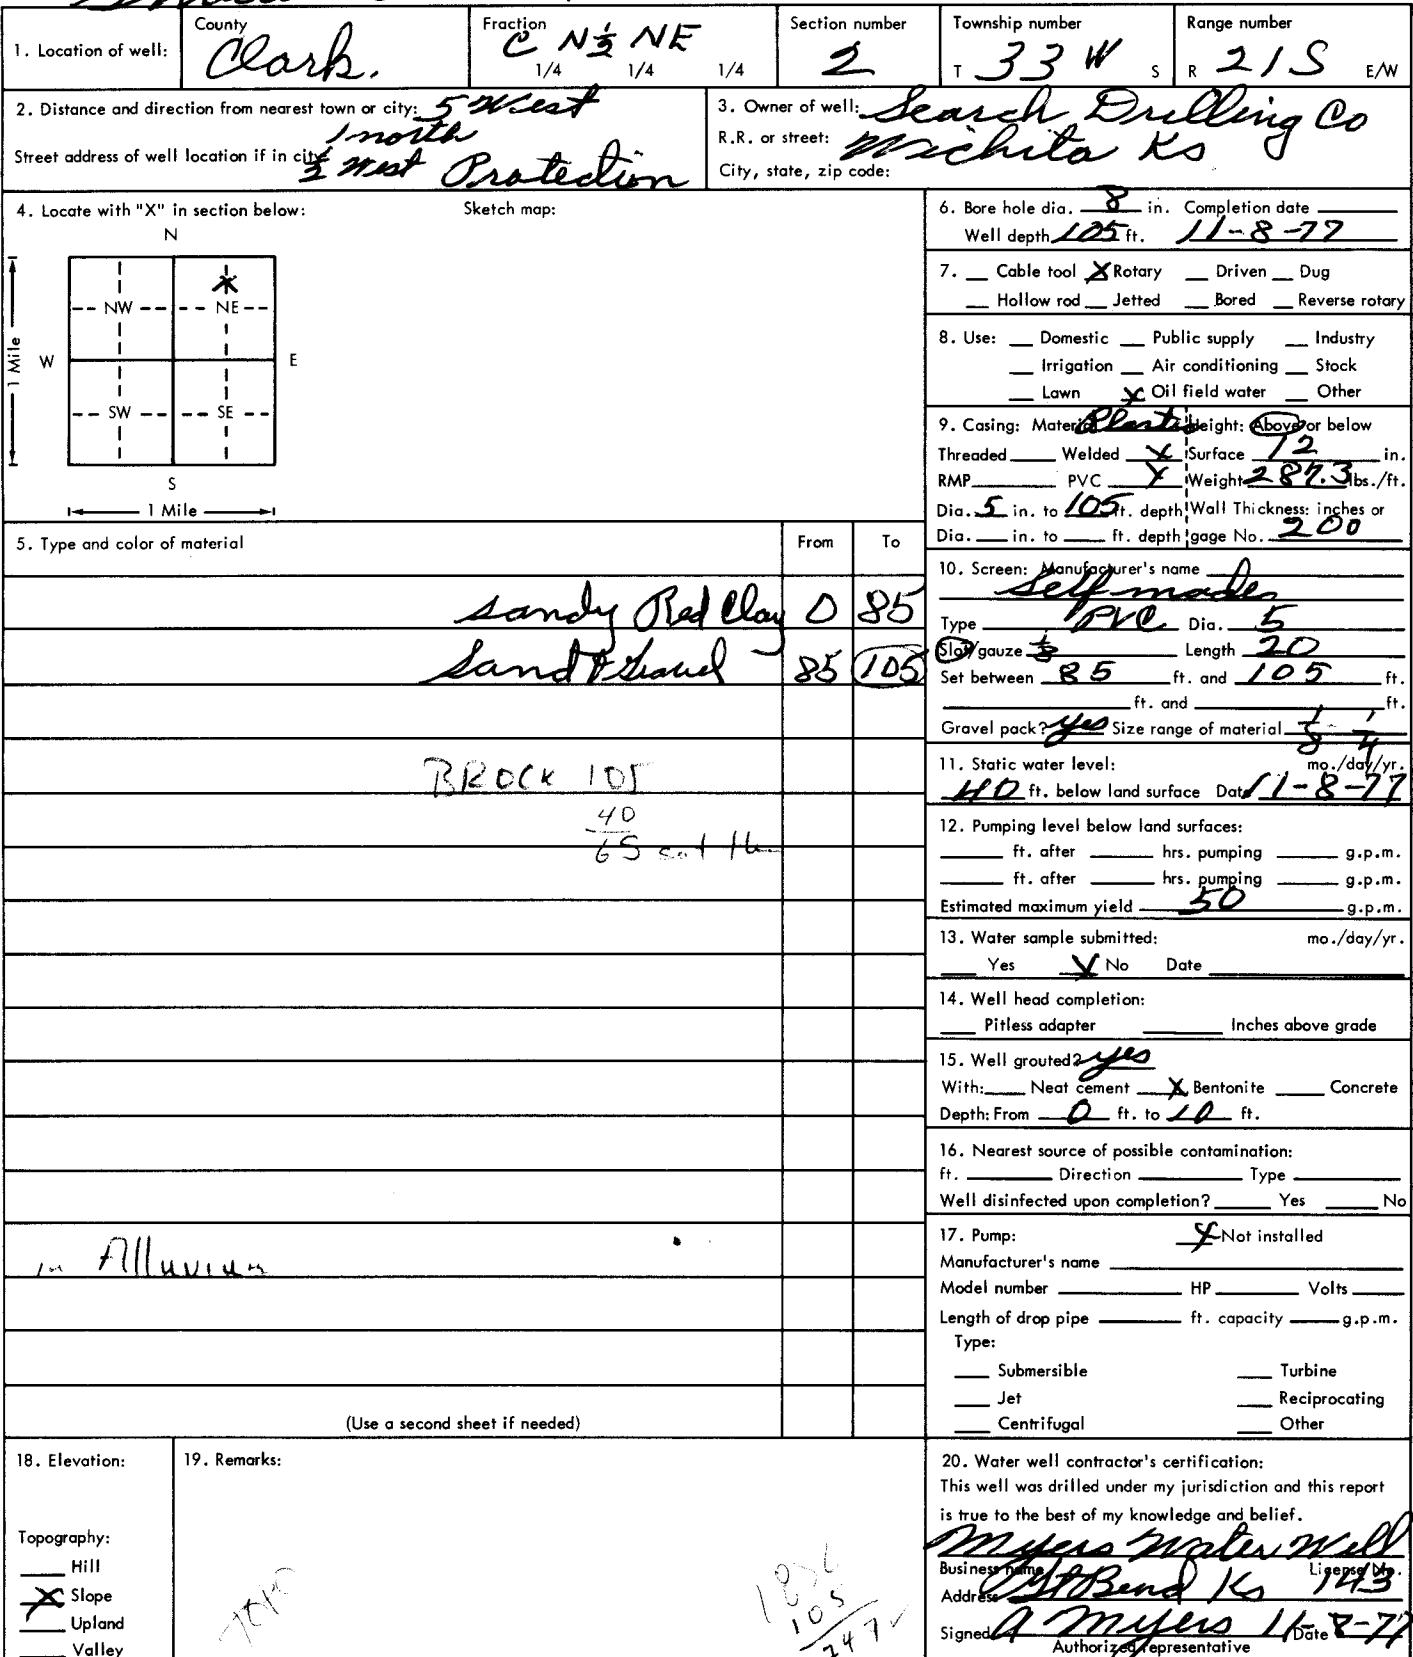 1. Location of well: County Clark. Fraction C N½ NE 1/4 1/4 1/4 Section number 2 Township number T 33 W S Range number R 21 S E/W
2. Distance and direction from nearest town or city: 5 West
1 north
Street address of well location if in city: ½ West Protection
3. Owner of well: Search Drilling Co
R.R. or street: Wichita Ks
City, state, zip code:
4. Locate with "X" in section below: Sketch map:
N
NW NE
W E
1 Mile
SW SE
S
1 Mile
5. Type and color of material From To
sandy Red Clay 0 85
Sand & Gravel 85 105
BROCK 105
40
65
in Alluvium
(Use a second sheet if needed)
6. Bore hole dia. 8 in. Completion date
Well depth 105 ft. 11-8-77
7. __ Cable tool X Rotary __ Driven __ Dug
__ Hollow rod __ Jetted __ Bored __ Reverse rotary
8. Use: __ Domestic __ Public supply __ Industry
__ Irrigation __ Air conditioning __ Stock
__ Lawn X Oil field water __ Other
9. Casing: Material Plastic Height: Above or below
Threaded ____ Welded X Surface 12 in.
RMP ____ PVC X Weight 287.3 lbs./ft.
Dia. 5 in. to 105 ft. depth Wall Thickness: inches or
Dia. ___ in. to ___ ft. depth gage No. 200
10. Screen: Manufacturer's name
Self made
Type PVC Dia. 5
Slot/gauze ⅛ Length 20
Set between 85 ft. and 105 ft.
____ ft. and ____ ft.
Gravel pack? yes Size range of material 1/8 - 1/4
11. Static water level: mo./day/yr.
40 ft. below land surface Date 11-8-77
12. Pumping level below land surfaces:
____ ft. after ____ hrs. pumping ____ g.p.m.
____ ft. after ____ hrs. pumping ____ g.p.m.
Estimated maximum yield 50 g.p.m.
13. Water sample submitted: mo./day/yr.
__ Yes X No Date
14. Well head completion:
__ Pitless adapter ____ Inches above grade
15. Well grouted? yes
With: __ Neat cement X Bentonite __ Concrete
Depth: From 0 ft. to 10 ft.
16. Nearest source of possible contamination:
ft. ____ Direction ____ Type ____
Well disinfected upon completion? ____ Yes ____ No
17. Pump: X Not installed
Manufacturer's name
Model number ____ HP ____ Volts ____
Length of drop pipe ____ ft. capacity ____ g.p.m.
Type:
__ Submersible __ Turbine
__ Jet __ Reciprocating
__ Centrifugal __ Other
18. Elevation:
Topography:
__ Hill
X Slope
__ Upland
__ Valley
19. Remarks:
TOPO
105
20. Water well contractor's certification:
This well was drilled under my jurisdiction and this report
is true to the best of my knowledge and belief.
Myers Water Well
Business name License No.
Address Gt Bend Ks 143
Signed A Myers Date 11-8-77
Authorized representative